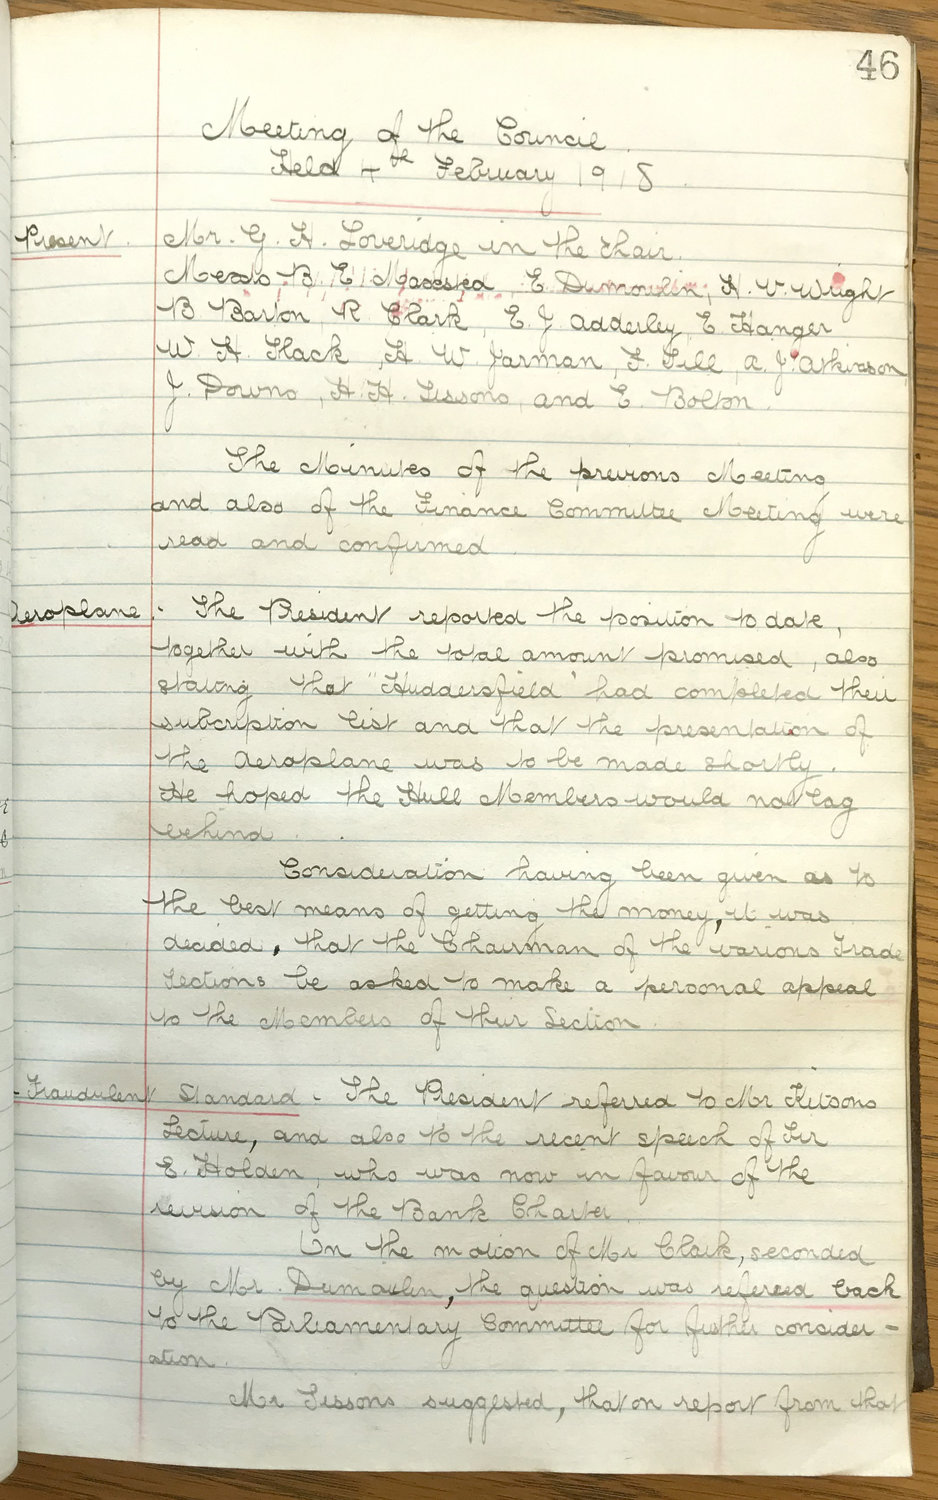 46
Meeting of the Council
Held 4th February 1918
Present. Mr. G. H. Loveridge in the chair.
Messrs B. E. Maxsted, E. Dumoulin, H. V. Wright
B Barton, R. Clark, E. J Adderley, E Hanger
W. H. Slack, H. W. Jarman, F. Till, A. J. Atkinson
J. Downs, H. H. Sissons, and E. Bolton.
The Minutes of the previous Meeting
and also of the Finance Committee Meeting were
read and confirmed
Aeroplane :- The President reported the position to date,
together with the total amount promised, also
stating that "Huddersfield" had completed their
subcription list and that the presentation of
the Aeroplane was to be made shortly.
He hoped the Hull Members would not lag
behind.
Consideration having been given as to
the best means of getting the money, it was
decided, that the Chairman of the various Trade
Sections be asked to make a personal appeal
to the Members of their Section.
Fraudulent Standard - The President referred to Mr Kitsons
Lecture, and also to the recent speech of Sir
E. Holden, who was now in favour of the
revision of the Bank Charter.
On the motion of Mr Clark, seconded
by Mr. Dumoulin, the question was referred back
to the Parliamentary Committee for further consider-
ation.
Mr Sissons suggested, that on report from that